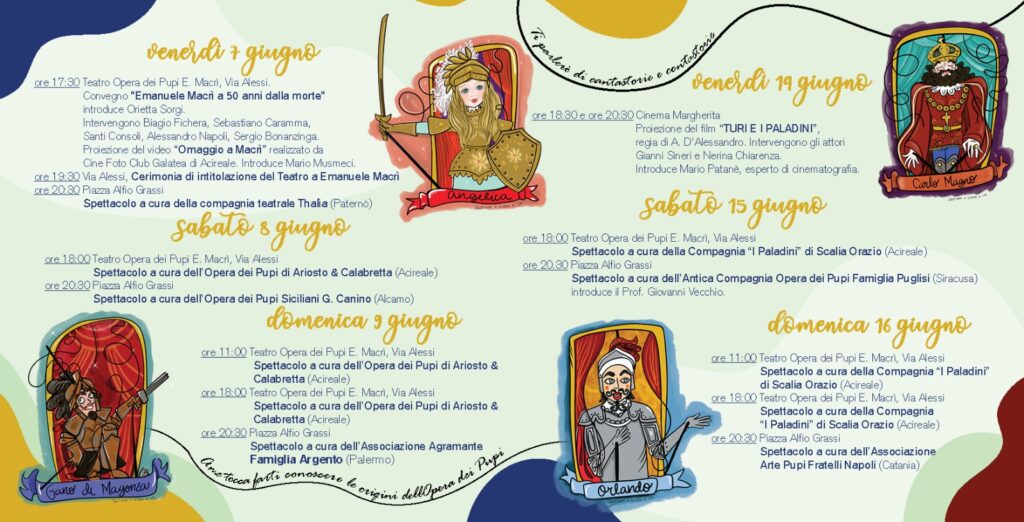 venerdì 7 giugno
ore 17:30 Teatro Opera dei Pupi E. Macrì, Via Alessi.
Convegno "Emanuele Macrì a 50 anni dalla morte"
introduce Orietta Sorgi.
Intervengono Biagio Fichera, Sebastiano Caramma,
Santi Consoli, Alessandro Napoli, Sergio Bonanzinga.
Proiezione del video "Omaggio a Macrì" realizzato da
Cine Foto Club Galatea di Acireale. Introduce Mario Musmeci.
ore 19:30 Via Alessi, Cerimonia di intitolazione del Teatro a Emanuele Macrì
ore 20:30 Piazza Alfio Grassi
Spettacolo a cura della compagnia teatrale Thalia (Paternò)
Angelica
sabato 8 giugno
ore 18:00 Teatro Opera dei Pupi E. Macrì, Via Alessi
Spettacolo a cura dell'Opera dei Pupi di Ariosto & Calabretta (Acireale)
ore 20:30 Piazza Alfio Grassi
Spettacolo a cura dell'Opera dei Pupi Siciliani G. Canino (Alcamo)
domenica 9 giugno
ore 11:00 Teatro Opera dei Pupi E. Macrì, Via Alessi
Spettacolo a cura dell'Opera dei Pupi di Ariosto &
Calabretta (Acireale)
ore 18:00 Teatro Opera dei Pupi E. Macrì, Via Alessi
Spettacolo a cura dell'Opera dei Pupi di Ariosto &
Calabretta (Acireale)
ore 20:30 Piazza Alfio Grassi
Spettacolo a cura dell'Associazione Agramante
Famiglia Argento (Palermo)
Gano di Maganza
Anzi tocca farti conoscere le origini dell'Opera dei Pupi
Ti parlerò di cantastorie e contastorie
venerdì 14 giugno
ore 18:30 e ore 20:30 Cinema Margherita
Proiezione del film "TURI E I PALADINI",
regia di A. D'Alessandro. Intervengono gli attori
Gianni Sineri e Nerina Chiarenza.
Introduce Mario Patanè, esperto di cinematografia.
Carlo Magno
sabato 15 giugno
ore 18:00 Teatro Opera dei Pupi E. Macrì, Via Alessi
Spettacolo a cura della Compagnia "I Paladini" di Scalia Orazio (Acireale)
ore 20.30 Piazza Alfio Grassi
Spettacolo a cura dell'Antica Compagnia Opera dei Pupi Famiglia Puglisi (Siracusa)
introduce il Prof. Giovanni Vecchio.
domenica 16 giugno
ore 11:00 Teatro Opera dei Pupi E. Macrì, Via Alessi
Spettacolo a cura della Compagnia "I Paladini"
di Scalia Orazio (Acireale)
ore 18:00 Teatro Opera dei Pupi E. Macrì, Via Alessi
Spettacolo a cura della Compagnia
"I Paladini" di Scalia Orazio (Acireale)
ore 20:30 Piazza Alfio Grassi
Spettacolo a cura dell'Associazione
Arte Pupi Fratelli Napoli (Catania)
Orlando